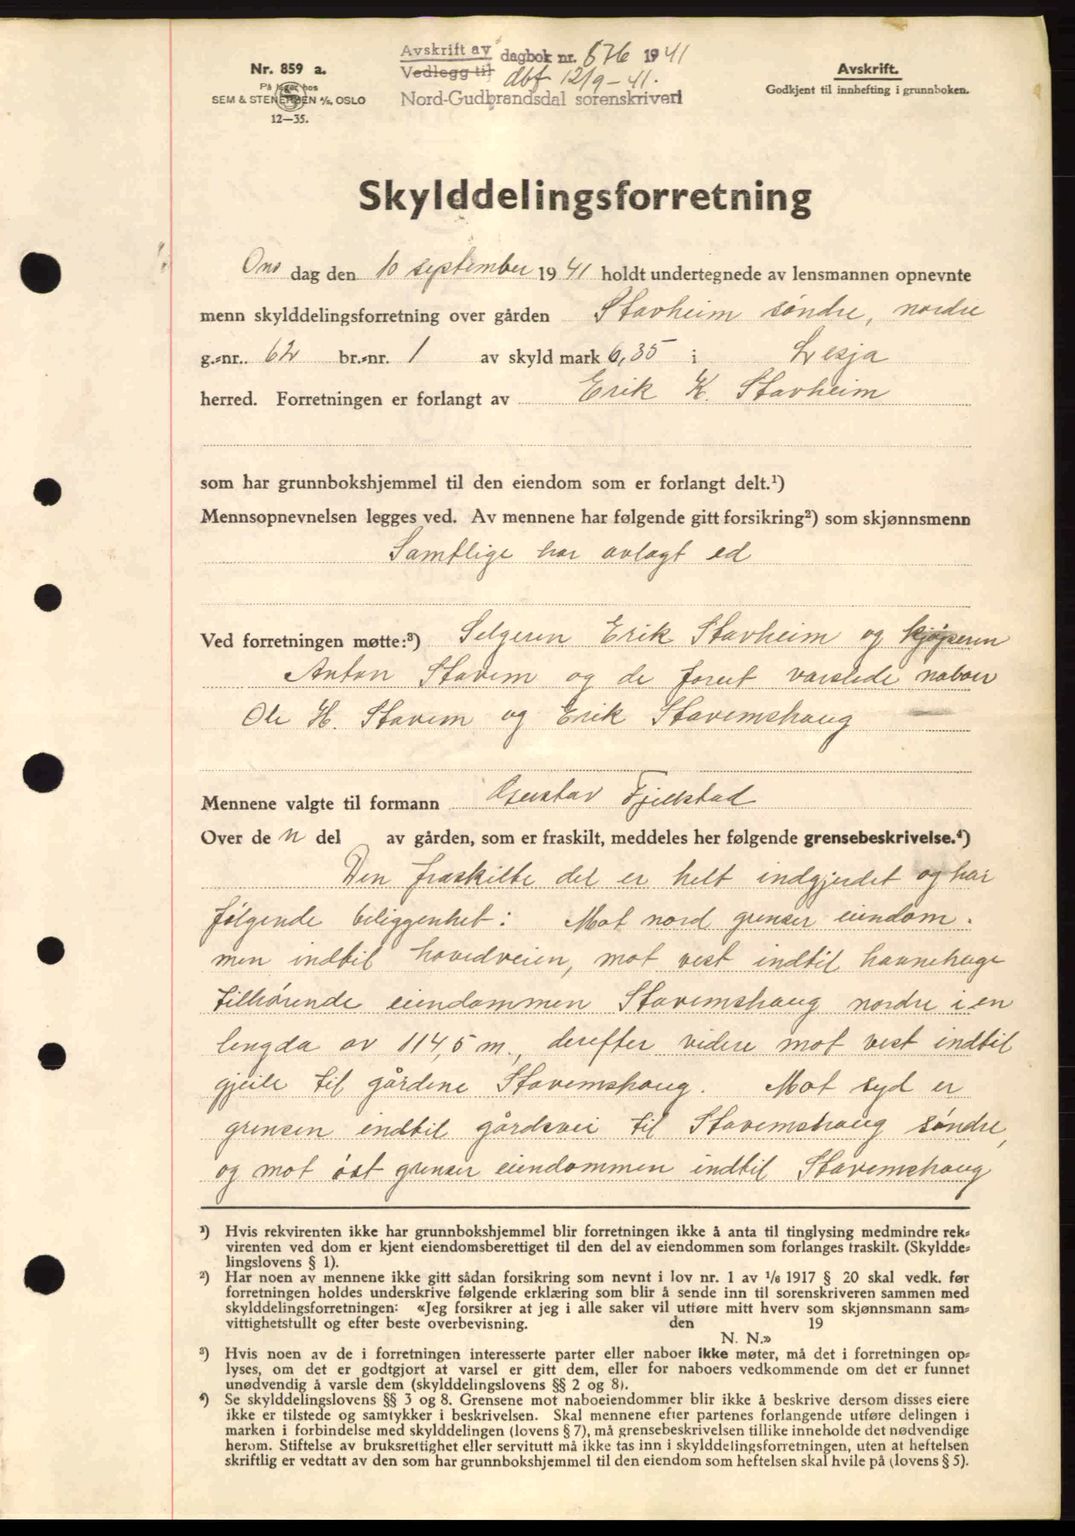 Nr. 859 a.
På lager hos
SEM & STENERSEN A/S, OSLO
12—35.
Avskrift av dagbok nr. 676 1941
Vedlegg til dbf 12/9-41.
Nord-Gudbrandsdal sorenskriveri
Avskrift.
Godkjent til innhefting i grunnboken.
Skylddelingsforretning
Ons dag den 10 september 1941 holdt undertegnede av lensmannen opnevnte
menn skylddelingsforretning over gården Stavheim søndre, nordre
g.-nr. 62 br.-nr. 1 av skyld mark 6,35 i Lesja
herred. Forretningen er forlangt av Erik K. Stavheim
som har grunnbokshjemmel til den eiendom som er forlangt delt.¹)
Mennsopnevnelsen legges ved. Av mennene har følgende gitt forsikring²) som skjønnsmenn
Samtlige har avlagt ed
Ved forretningen møtte:³) Selgeren Erik Stavheim og kjøperen
Anton Stavem og de forut varslede naboer
Ole H. Stavem og Erik Stavemshaug
Mennene valgte til formann Gustav Fjellstad
Over den del av gården, som er fraskilt, meddeles her følgende grensebeskrivelse.⁴)
Den fraskilte del er helt indgjerdet og har
følgende beliggenhet: Mot nord grenser eiendom-
men indtil hovedveien, mot vest indtil havnehage
tilhørende eiendommen Stavemshaug nordre i en
lengda av 114,5 m, derefter videre mot vest indtil
gjeile til gårdene Stavemshaug. Mot syd er
grensen indtil gårdsvei til Stavemshaug søndre,
og mot øst grenser eiendommen indtil Stavemshaug
¹) Hvis rekvirenten ikke har grunnbokshjemmel blir forretningen ikke å anta til tinglysing medmindre rek-
virenten ved dom er kjent eiendomsberettiget til den del av eiendommen som forlanges fraskilt. (Skyldde-
lingslovens § 1).
²) Har noen av mennene ikke gitt sådan forsikring som nevnt i lov nr. 1 av 1/6 1917 § 20 skal vedk. før
forretningen holdes underskrive følgende erklæring som blir å sende inn til sorenskriveren sammen med
skylddelingsforretningen: «Jeg forsikrer at jeg i alle saker vil utføre mitt hverv som skjønnsmann sam-
vittighetsfullt og efter beste overbevisning. den 19
N. N.»
³) Hvis noen av de i forretningen interesserte parter eller naboer ikke møter, må det i forretningen op-
lyses, om det er godtgjort at varsel er gitt dem, eller for naboers vedkommende om det er funnet
unødvendig å varsle dem (skylddelingslovens §§ 2 og 8).
⁴) Se skylddelingslovens §§ 3 og 8. Grensene mot naboeiendommer blir ikke å beskrive dersom disses eiere
ikke er tilstede og samtykker i beskrivelsen. Skal mennene efter partenes forlangende utføre delingen i
marken i forbindelse med skylddelingen (lovens § 7), må grensebeskrivelsen tillike inneholde det nødvendige
herom. Stiftelse av bruksrettighet eller servitutt må ikke tas inn i skylddelingsforretningen, uten at heftelsen
skriftlig er vedtatt av den som har grunnbokshjemmel til den eiendom som heftelsen skal hvile på (lovens § 5).